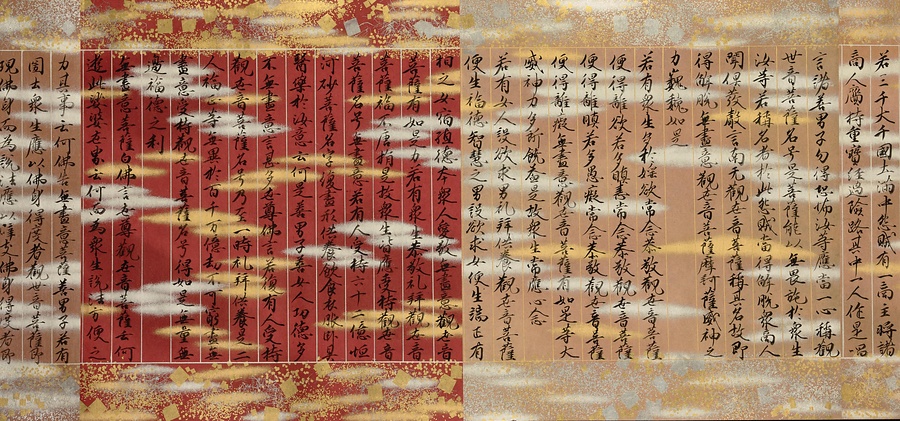 若三千大千國土滿中怨賊有一商主將諸
商人齎持重寶經過險路其中一人作是唱
言諸善男子勿得恐怖汝等應當一心稱觀
世音菩薩名号是菩薩能以無畏施於衆生
汝等若稱名者於此怨賊當得解脫衆商人
聞俱發聲言南无觀世音菩薩稱其名故即
得解脫無盡意觀世音菩薩摩訶薩威神之
力巍巍如是
若有衆生多於婬欲常念恭敬觀世音菩薩
便得離欲若多瞋恚常念恭敬觀世音菩薩
便得離瞋若多愚癡常念恭敬觀世音菩薩
便得離癡無盡意觀世音菩薩有如是等大
威神力多所饒益是故衆生常應心念
若有女人設欲求男礼拜供養觀世音菩薩
便生福德智慧之男設欲求女便生端正有
相之女宿殖德本衆人愛敬無盡意觀世音
菩薩有如是力若有衆生恭敬礼拜觀世音
菩薩福不唐捐是故衆生皆應受持觀世音
菩薩名号無盡意若有人受持六十二億恒
河沙菩薩名字復盡形供養飲食衣服卧具
醫藥於汝意云何是善男子善女人功德多
不無盡意言甚多世尊佛言若復有人受持
觀世音菩薩名号乃至一時礼拜供養是二
人福正等無異於百千万億劫不可窮盡無
盡意受持觀世音菩薩名号得如是無量無
邊福德之利
無盡意菩薩白佛言世尊觀世音菩薩云何
遊此娑婆世界云何而為衆生說法方便之
力其事云何佛告無盡意菩薩善男子若有
國土衆生應以佛身得度者觀世音菩薩即
現佛身而為說法應以辟支佛身得度者即